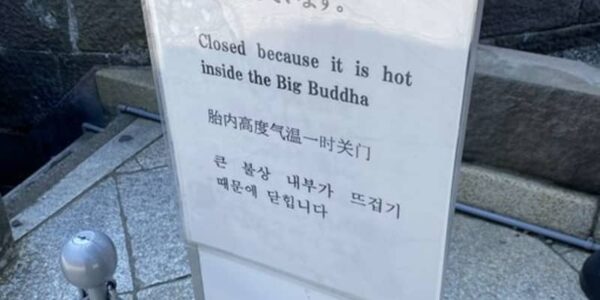 います。
Closed because it is hot
inside the Big Buddha
胎内高度气温一时关门
큰 불상 내부가 뜨겁기
때문에 닫힙니다